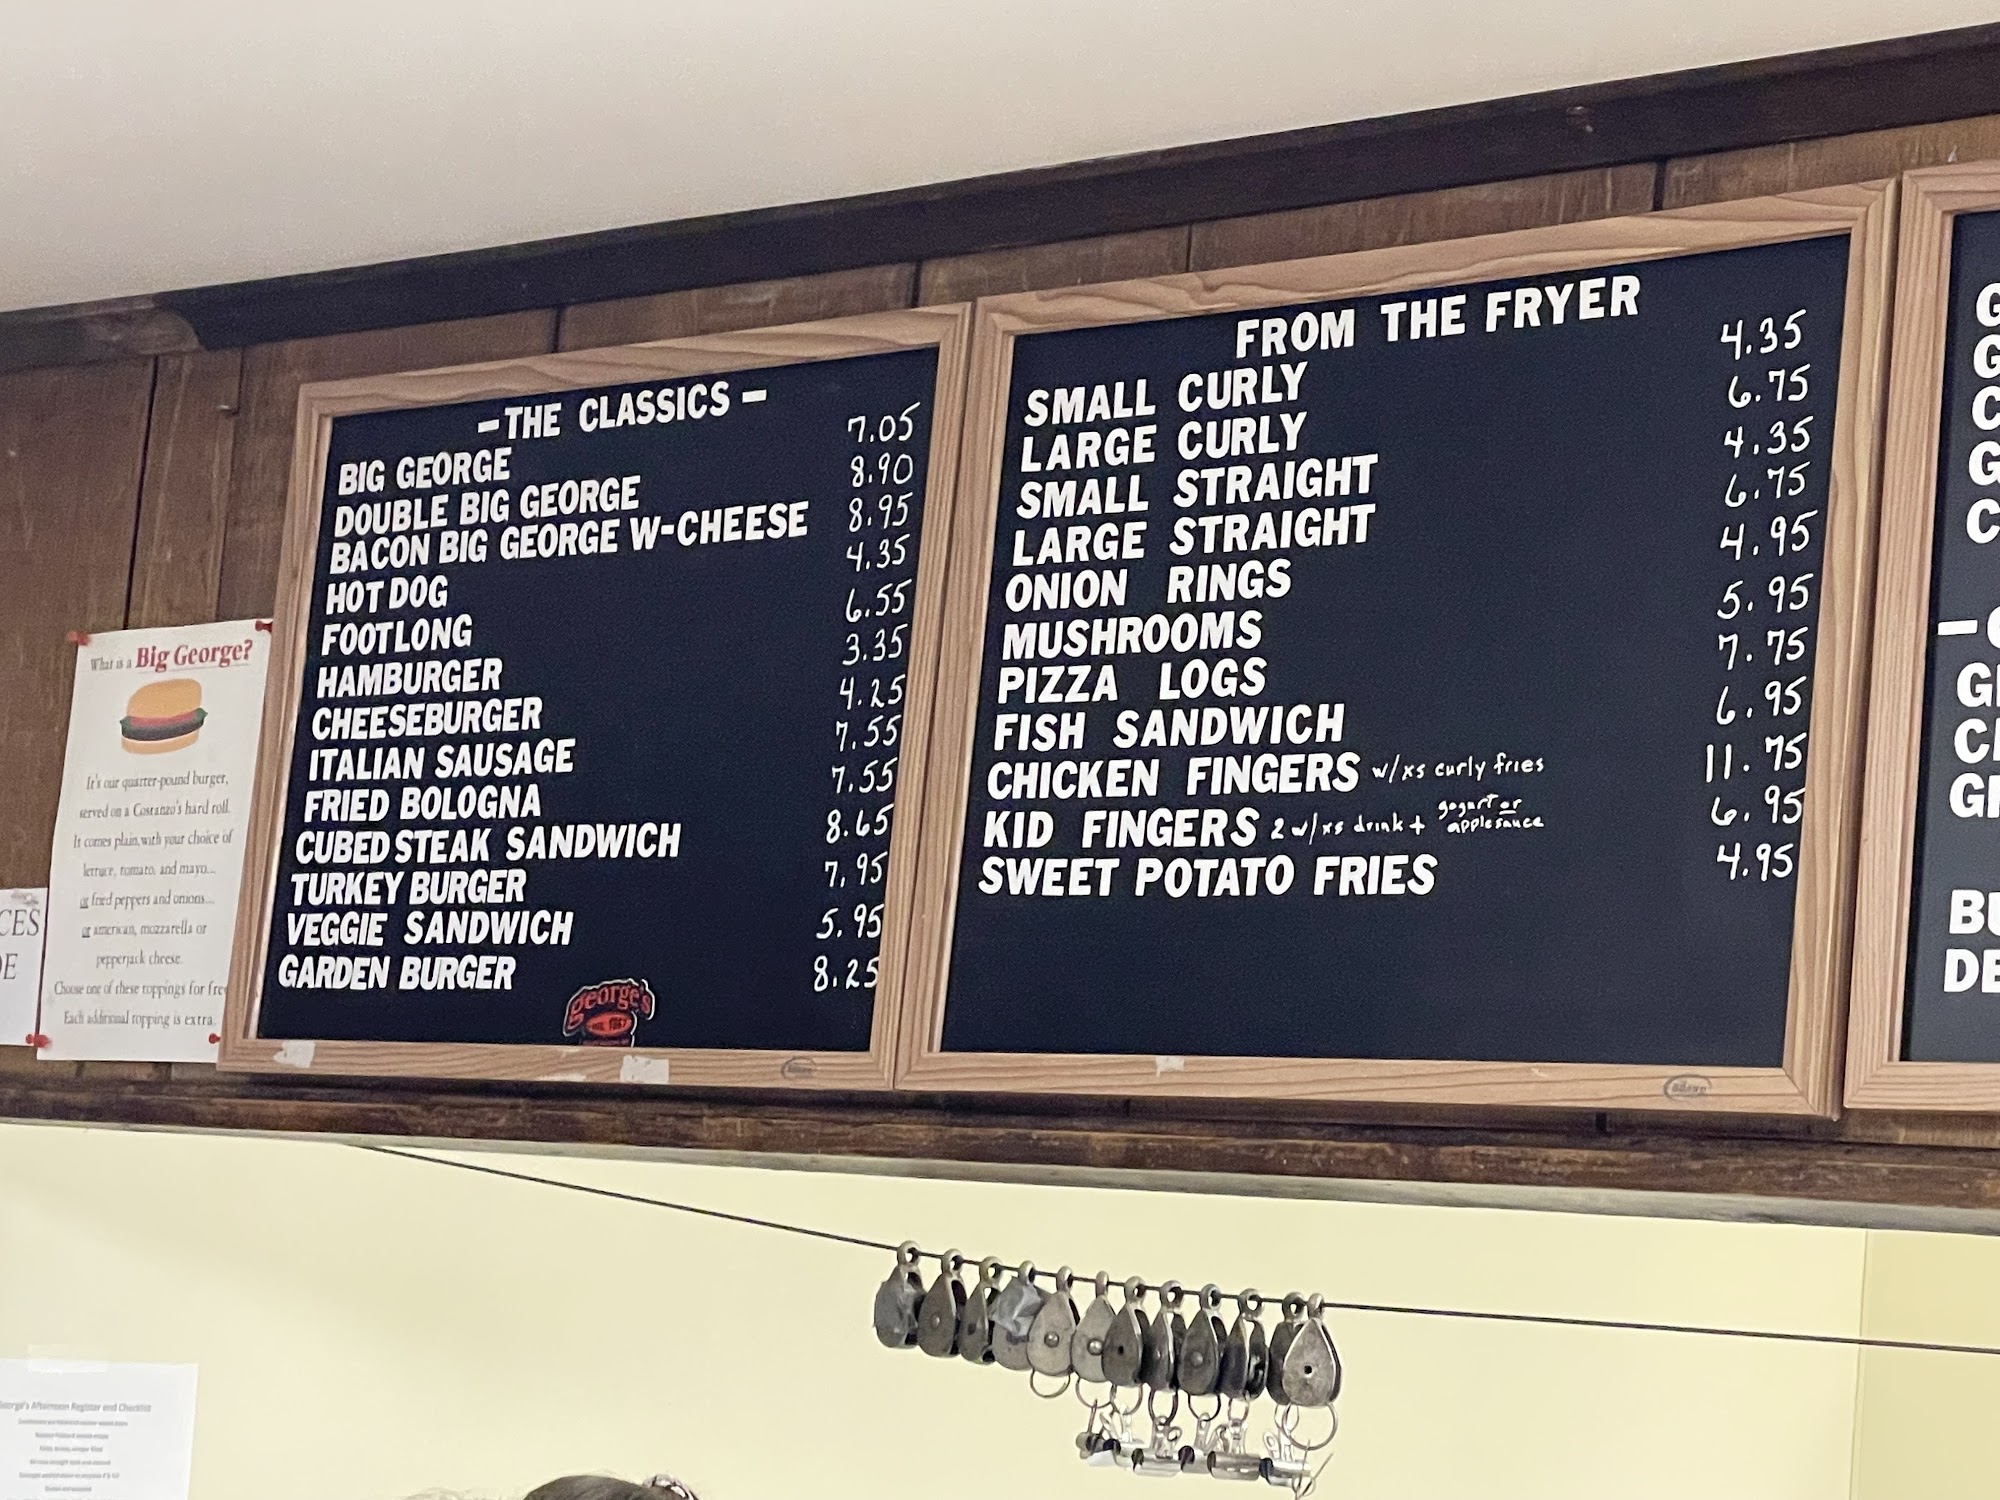 -THE CLASSICS-
BIG GEORGE 7.05
DOUBLE BIG GEORGE 8.90
BACON BIG GEORGE W-CHEESE 8.95
HOT DOG 4.35
FOOTLONG 6.55
HAMBURGER 3.35
CHEESEBURGER 4.25
ITALIAN SAUSAGE 7.55
FRIED BOLOGNA 7.55
CUBED STEAK SANDWICH 8.65
TURKEY BURGER 7.95
VEGGIE SANDWICH 5.95
GARDEN BURGER 8.25
george's
FROM THE FRYER
SMALL CURLY 4.35
LARGE CURLY 6.75
SMALL STRAIGHT 4.35
LARGE STRAIGHT 6.75
ONION RINGS 4.95
MUSHROOMS 5.95
PIZZA LOGS 7.75
FISH SANDWICH 6.95
CHICKEN FINGERS w/xs curly fries 11.75
KID FINGERS 2 w/xs drink + yogurt or applesauce 6.95
SWEET POTATO FRIES 4.95
What is a Big George?
It's our quarter-pound burger,
served on a Costanzo's hard roll.
It comes plain with your choice of
lettuce, tomato, and mayo...
or fried peppers and onions...
or american, mozzarella or
pepperjack cheese.
Choose one of these toppings for free
Each additional topping is extra.
George's Afternoon Register end Checklist